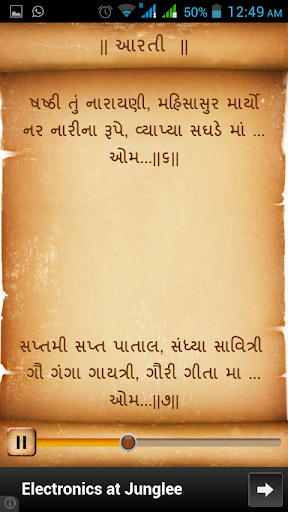 12:49 AM
|| આરતી ||
ષષ્ઠી તું નારાયણી, મહિસાસુર માર્યો
નર નારીના રૂપે, વ્યાપ્યા સઘડે માં ...
ઓમ...||૬||
સપ્તમી સપ્ત પાતાલ, સંધ્યા સાવિત્રી
ગૌ ગંગા ગાયત્રી, ગૌરી ગીતા મા ...
ઓમ...||૭||
Electronics at Junglee